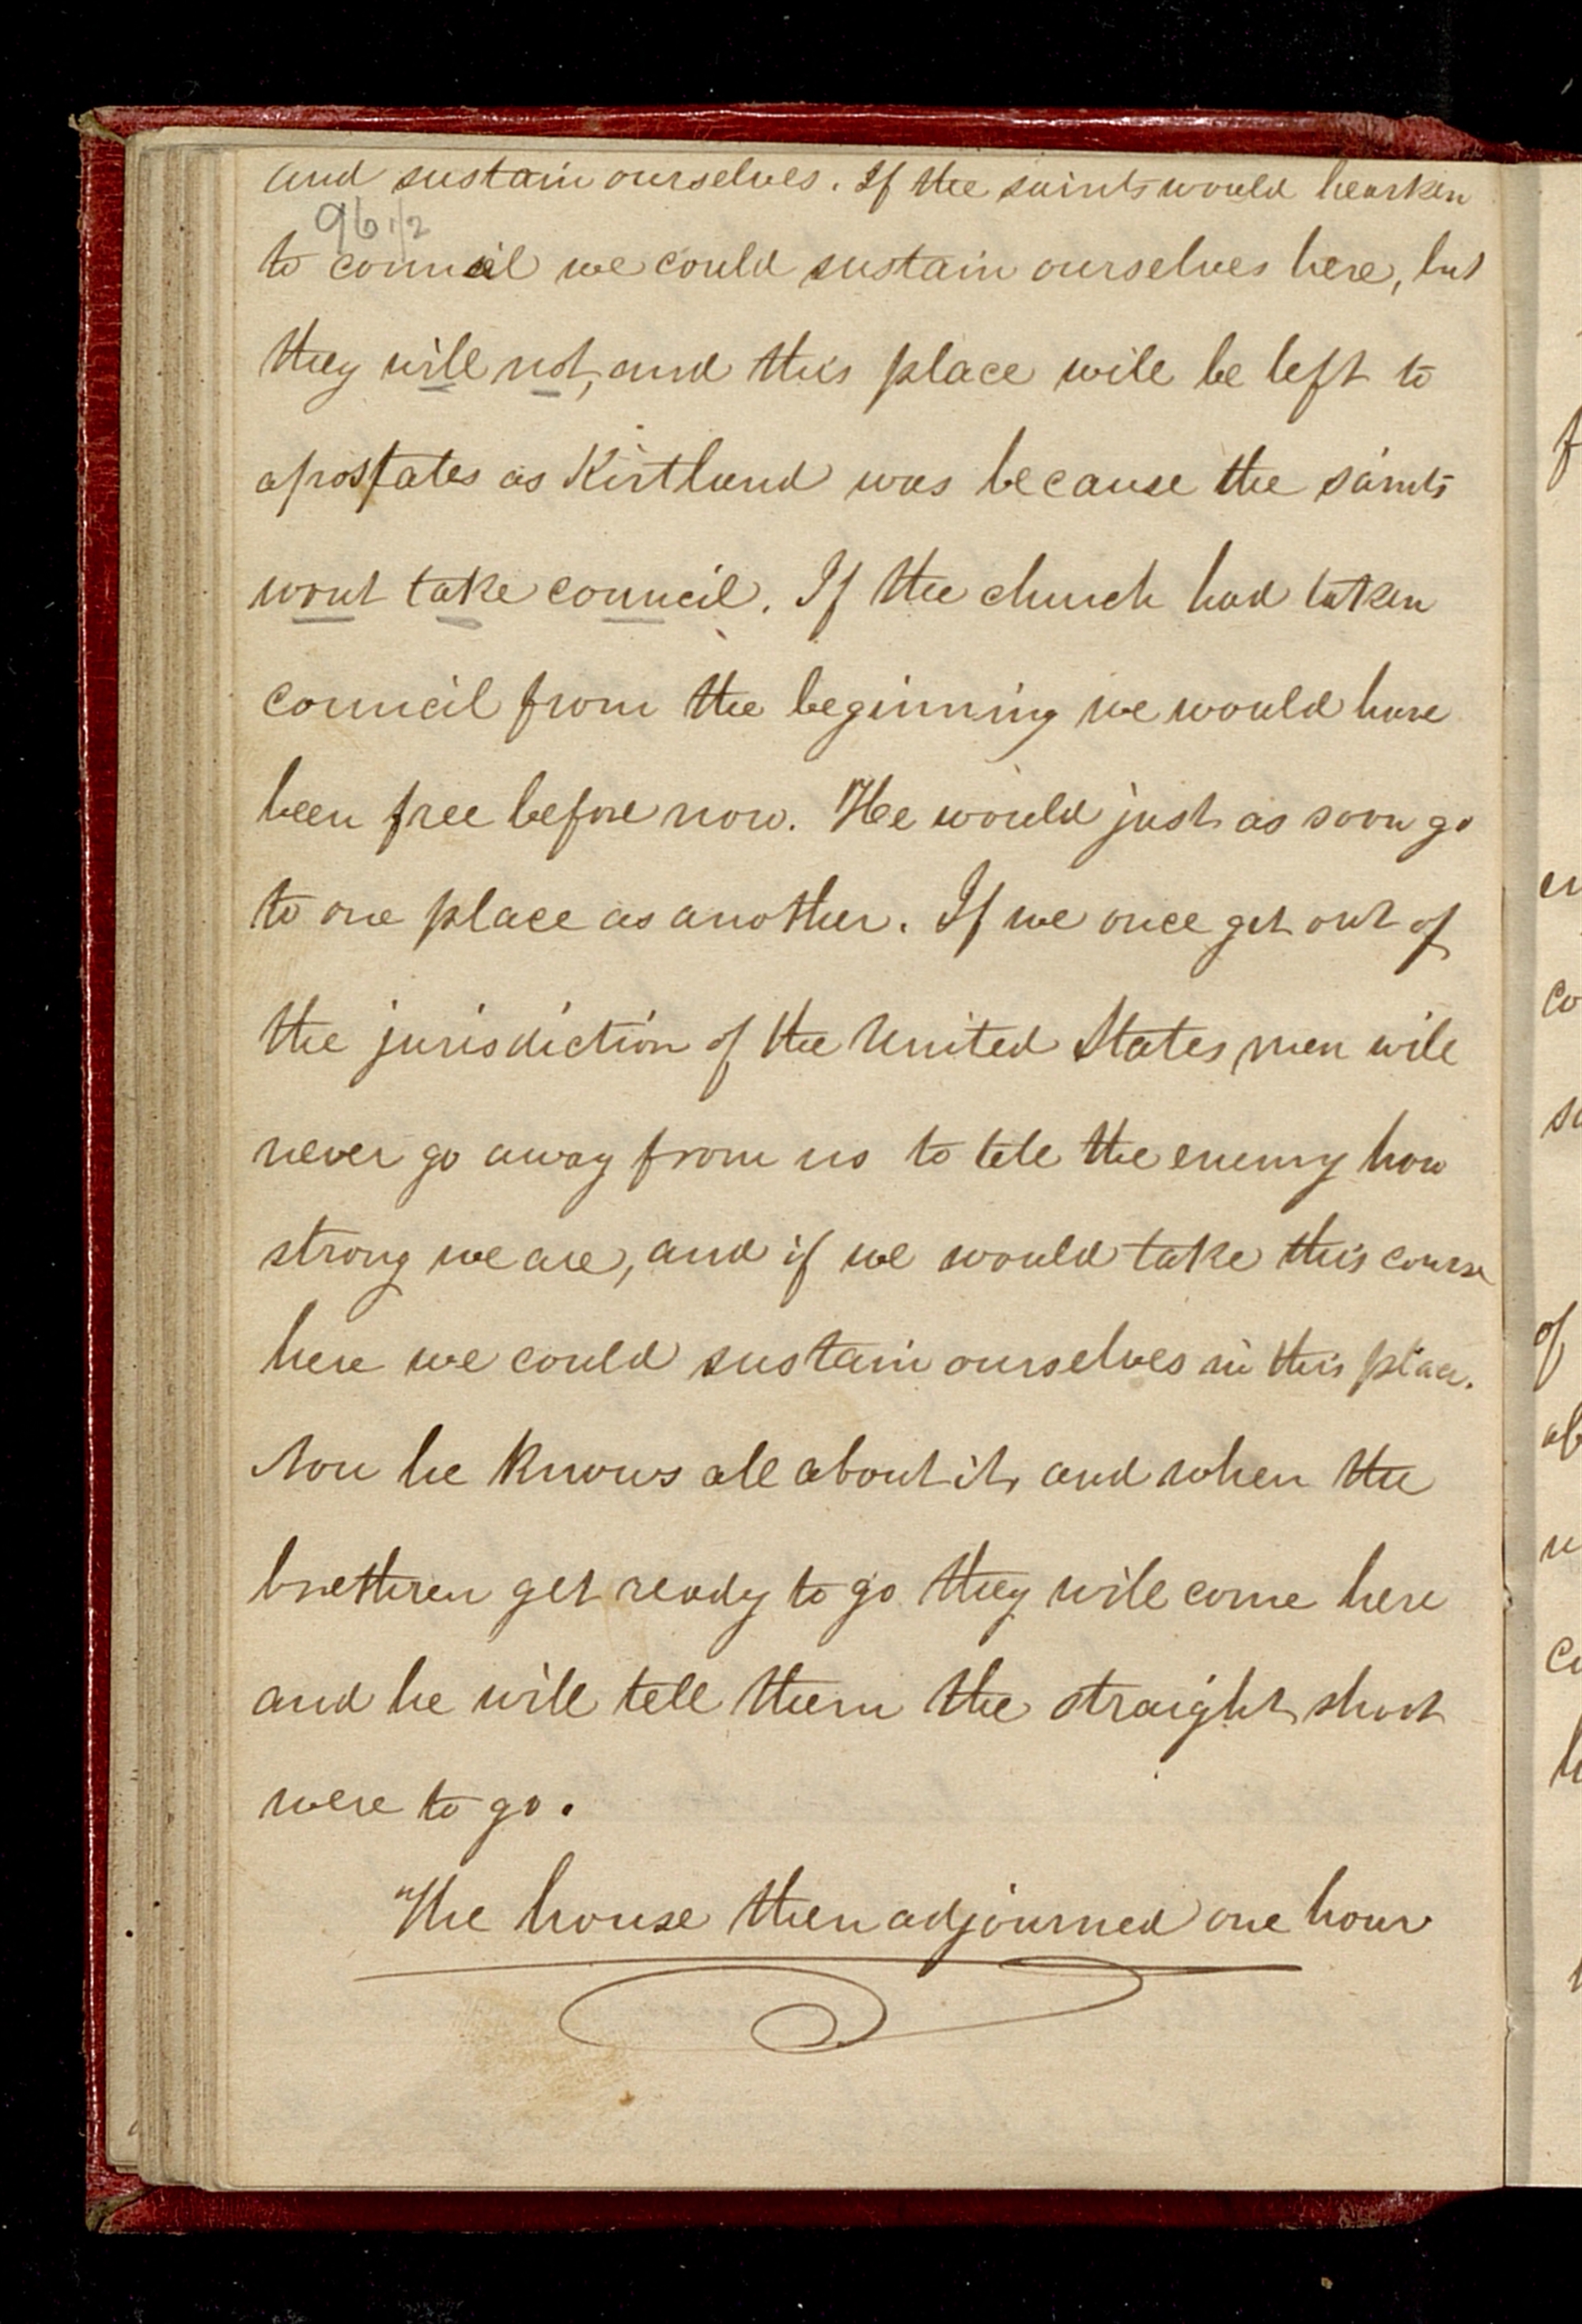 and sustain ourselves. If the saints would hearken
96 1/2
to council we could sustain ourselves here, but
they will not, and this place will be left to
apostates as Kirtland was because the saints
wont take council. If the church had taken
council from the beginning we would have
been free before now. He would just as soon go
to one place as another. If we once get out of
the jurisdiction of the United States men will
never go away from us to tell the enemy how
strong we are, and if we would take this course
here we could sustain ourselves in this place.
Now he knows all about it, and when the
brethren get ready to go they will come here
and he will tell them the straight shoot
were to go.
The house then adjourned one hour
f
en
co
of
ab